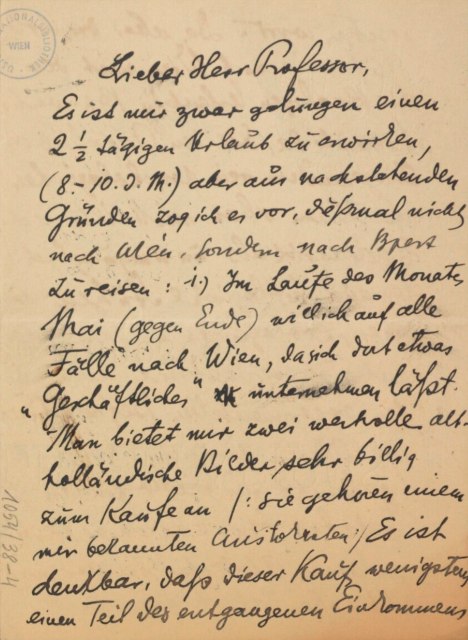 NATIONALBIBLIOTHEK
WIEN
Lieber Herr Professor,
Es ist mir zwar gelungen einen
2 ½ tägigen Urlaub zu erwirken,
(8.–10. d. M.) aber aus nachstehenden
Gründen zog ich es vor, dießmal nicht
nach Wien, sondern nach Bpest
zu reisen: 1.) Im Laufe des Monats
Mai (gegen Ende) will ich auf alle
Fälle nach Wien, da sich dort etwas
„Geschäftliches" unternehmen läßt.
Man bietet mir zwei wertvolle alt-
holländische Bilder sehr billig
zum Kaufe an /: sie gehören einem
mir bekannten Aristokraten :/ Es ist
denkbar, daß dieser Kauf wenigstens
einen Teil des entgangenen Einkommens
1054/38-4